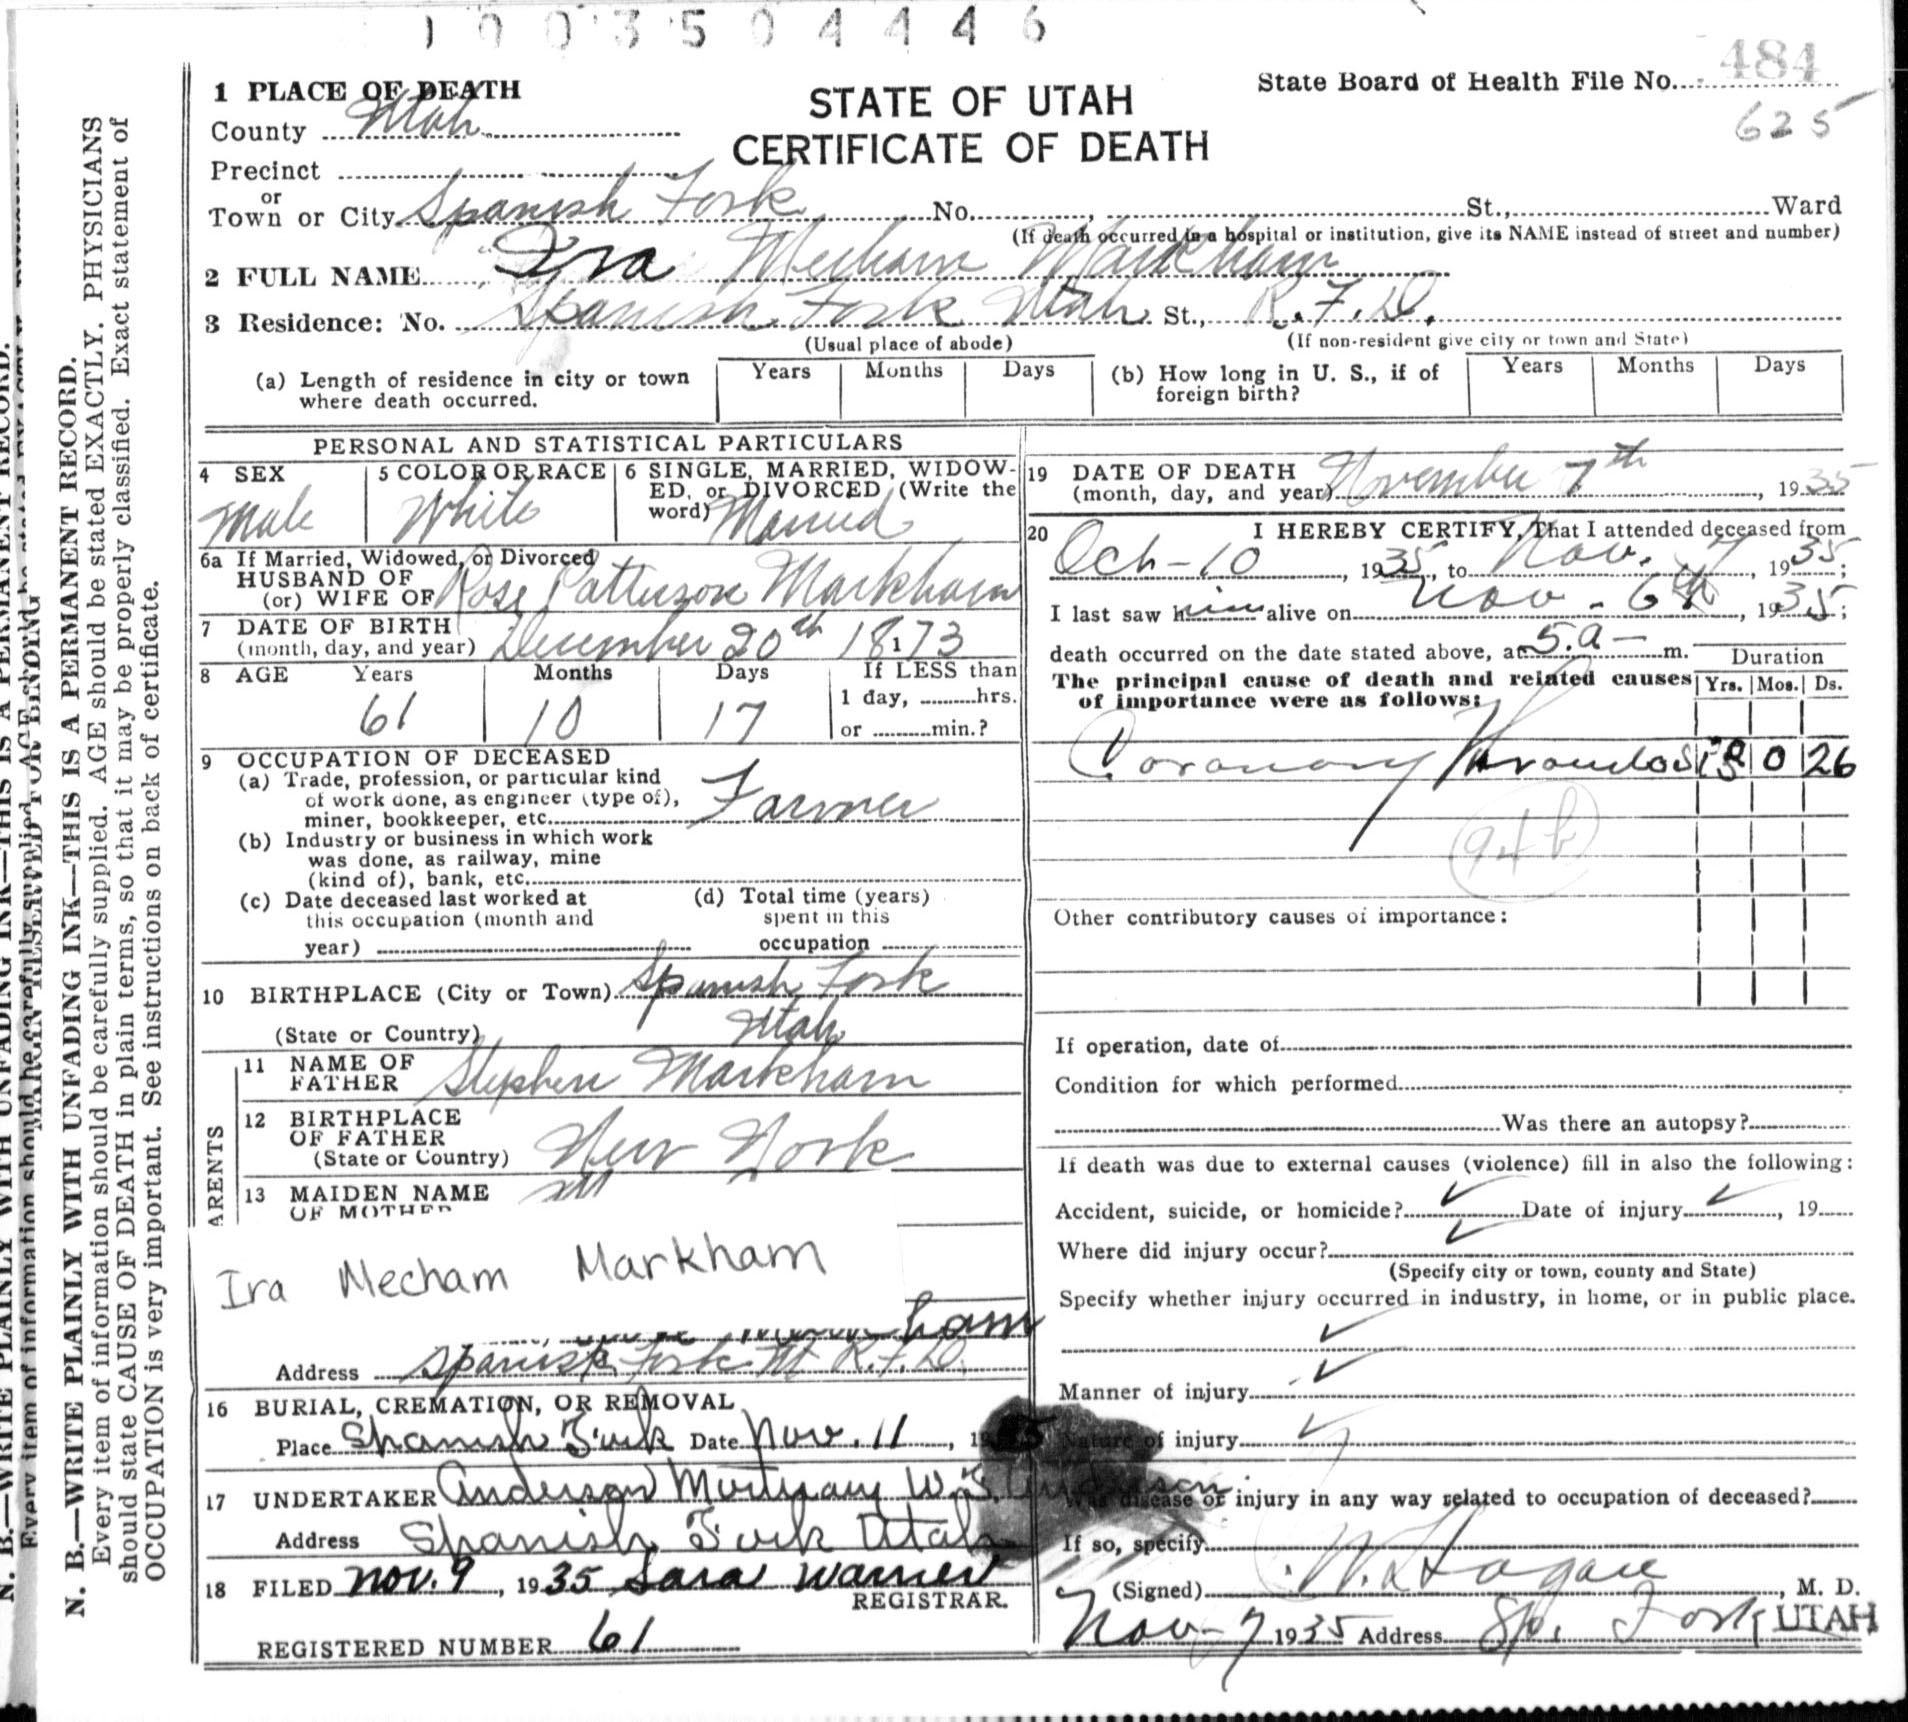 1003504446
1 PLACE OF DEATH
County Utah
STATE OF UTAH
CERTIFICATE OF DEATH
State Board of Health File No. 484
625
Precinct
or
Town or City Spanish Fork No. , St., Ward
(If death occurred in a hospital or institution, give its NAME instead of street and number)
2 FULL NAME Ira Mecham Markham
3 Residence: No. Spanish Fork Utah St., R.F.D.
(Usual place of abode) (If non-resident give city or town and State)
(a) Length of residence in city or town where death occurred. Years Months Days
(b) How long in U. S., if of foreign birth? Years Months Days
PERSONAL AND STATISTICAL PARTICULARS
4 SEX
Male
5 COLOR OR RACE
White
6 SINGLE, MARRIED, WIDOW-
ED, or DIVORCED (Write the
word) Married
6a If Married, Widowed, or Divorced
HUSBAND OF
(or) WIFE OF Rose Patterson Markham
7 DATE OF BIRTH
(month, day, and year) December 20th 1873
8 AGE Years Months Days If LESS than
61 10 17
1 day, hrs.
or min.?
9 OCCUPATION OF DECEASED
(a) Trade, profession, or particular kind
of work done, as engineer (type of),
miner, bookkeeper, etc. Farmer
(b) Industry or business in which work
was done, as railway, mine
(kind of), bank, etc.
(c) Date deceased last worked at
this occupation (month and
year)
(d) Total time (years)
spent in this
occupation
10 BIRTHPLACE (City or Town) Spanish Fork
(State or Country) Utah
PARENTS
11 NAME OF
FATHER Stephen Markham
12 BIRTHPLACE
OF FATHER
(State or Country) New York
13 MAIDEN NAME
OF MOTHER
Ira Mecham Markham
ham
Address Spanish Fork Ut R.F.D.
16 BURIAL, CREMATION, OR REMOVAL
Place Spanish Fork Date Nov. 11, 1935
17 UNDERTAKER Anderson Mortuary W.
Address Spanish Fork Utah
18 FILED Nov. 9, 1935 Sara Warner
REGISTRAR.
REGISTERED NUMBER 61
19 DATE OF DEATH
(month, day, and year) November 7th, 1935
20 I HEREBY CERTIFY, That I attended deceased from
Oct-10, 1935, to Nov. 7, 1935;
I last saw him alive on Nov - 6th, 1935;
death occurred on the date stated above, at 5.a- m.
Duration
The principal cause of death and related causes
of importance were as follows:
Yrs. Mos. Ds.
Coronary Thrombosis 0 0 26
94b
Other contributory causes of importance:
If operation, date of
Condition for which performed
Was there an autopsy?
If death was due to external causes (violence) fill in also the following:
Accident, suicide, or homicide? Date of injury , 19
Where did injury occur?
(Specify city or town, county and State)
Specify whether injury occurred in industry, in home, or in public place.
Manner of injury
Nature of injury
Was disease or injury in any way related to occupation of deceased?
If so, specify
(Signed) W. Hagan, M. D.
Nov-7 1935 Address Sp. Fork UTAH
N. B.—WRITE PLAINLY WITH UNFADING INK—THIS IS A PERMANENT RECORD.
Every item of information should be carefully supplied. AGE should be stated EXACTLY. PHYSICIANS
should state CAUSE OF DEATH in plain terms, so that it may be properly classified. Exact statement of
OCCUPATION is very important. See instructions on back of certificate.